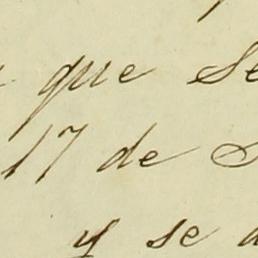 que Se
17 de S
y se a